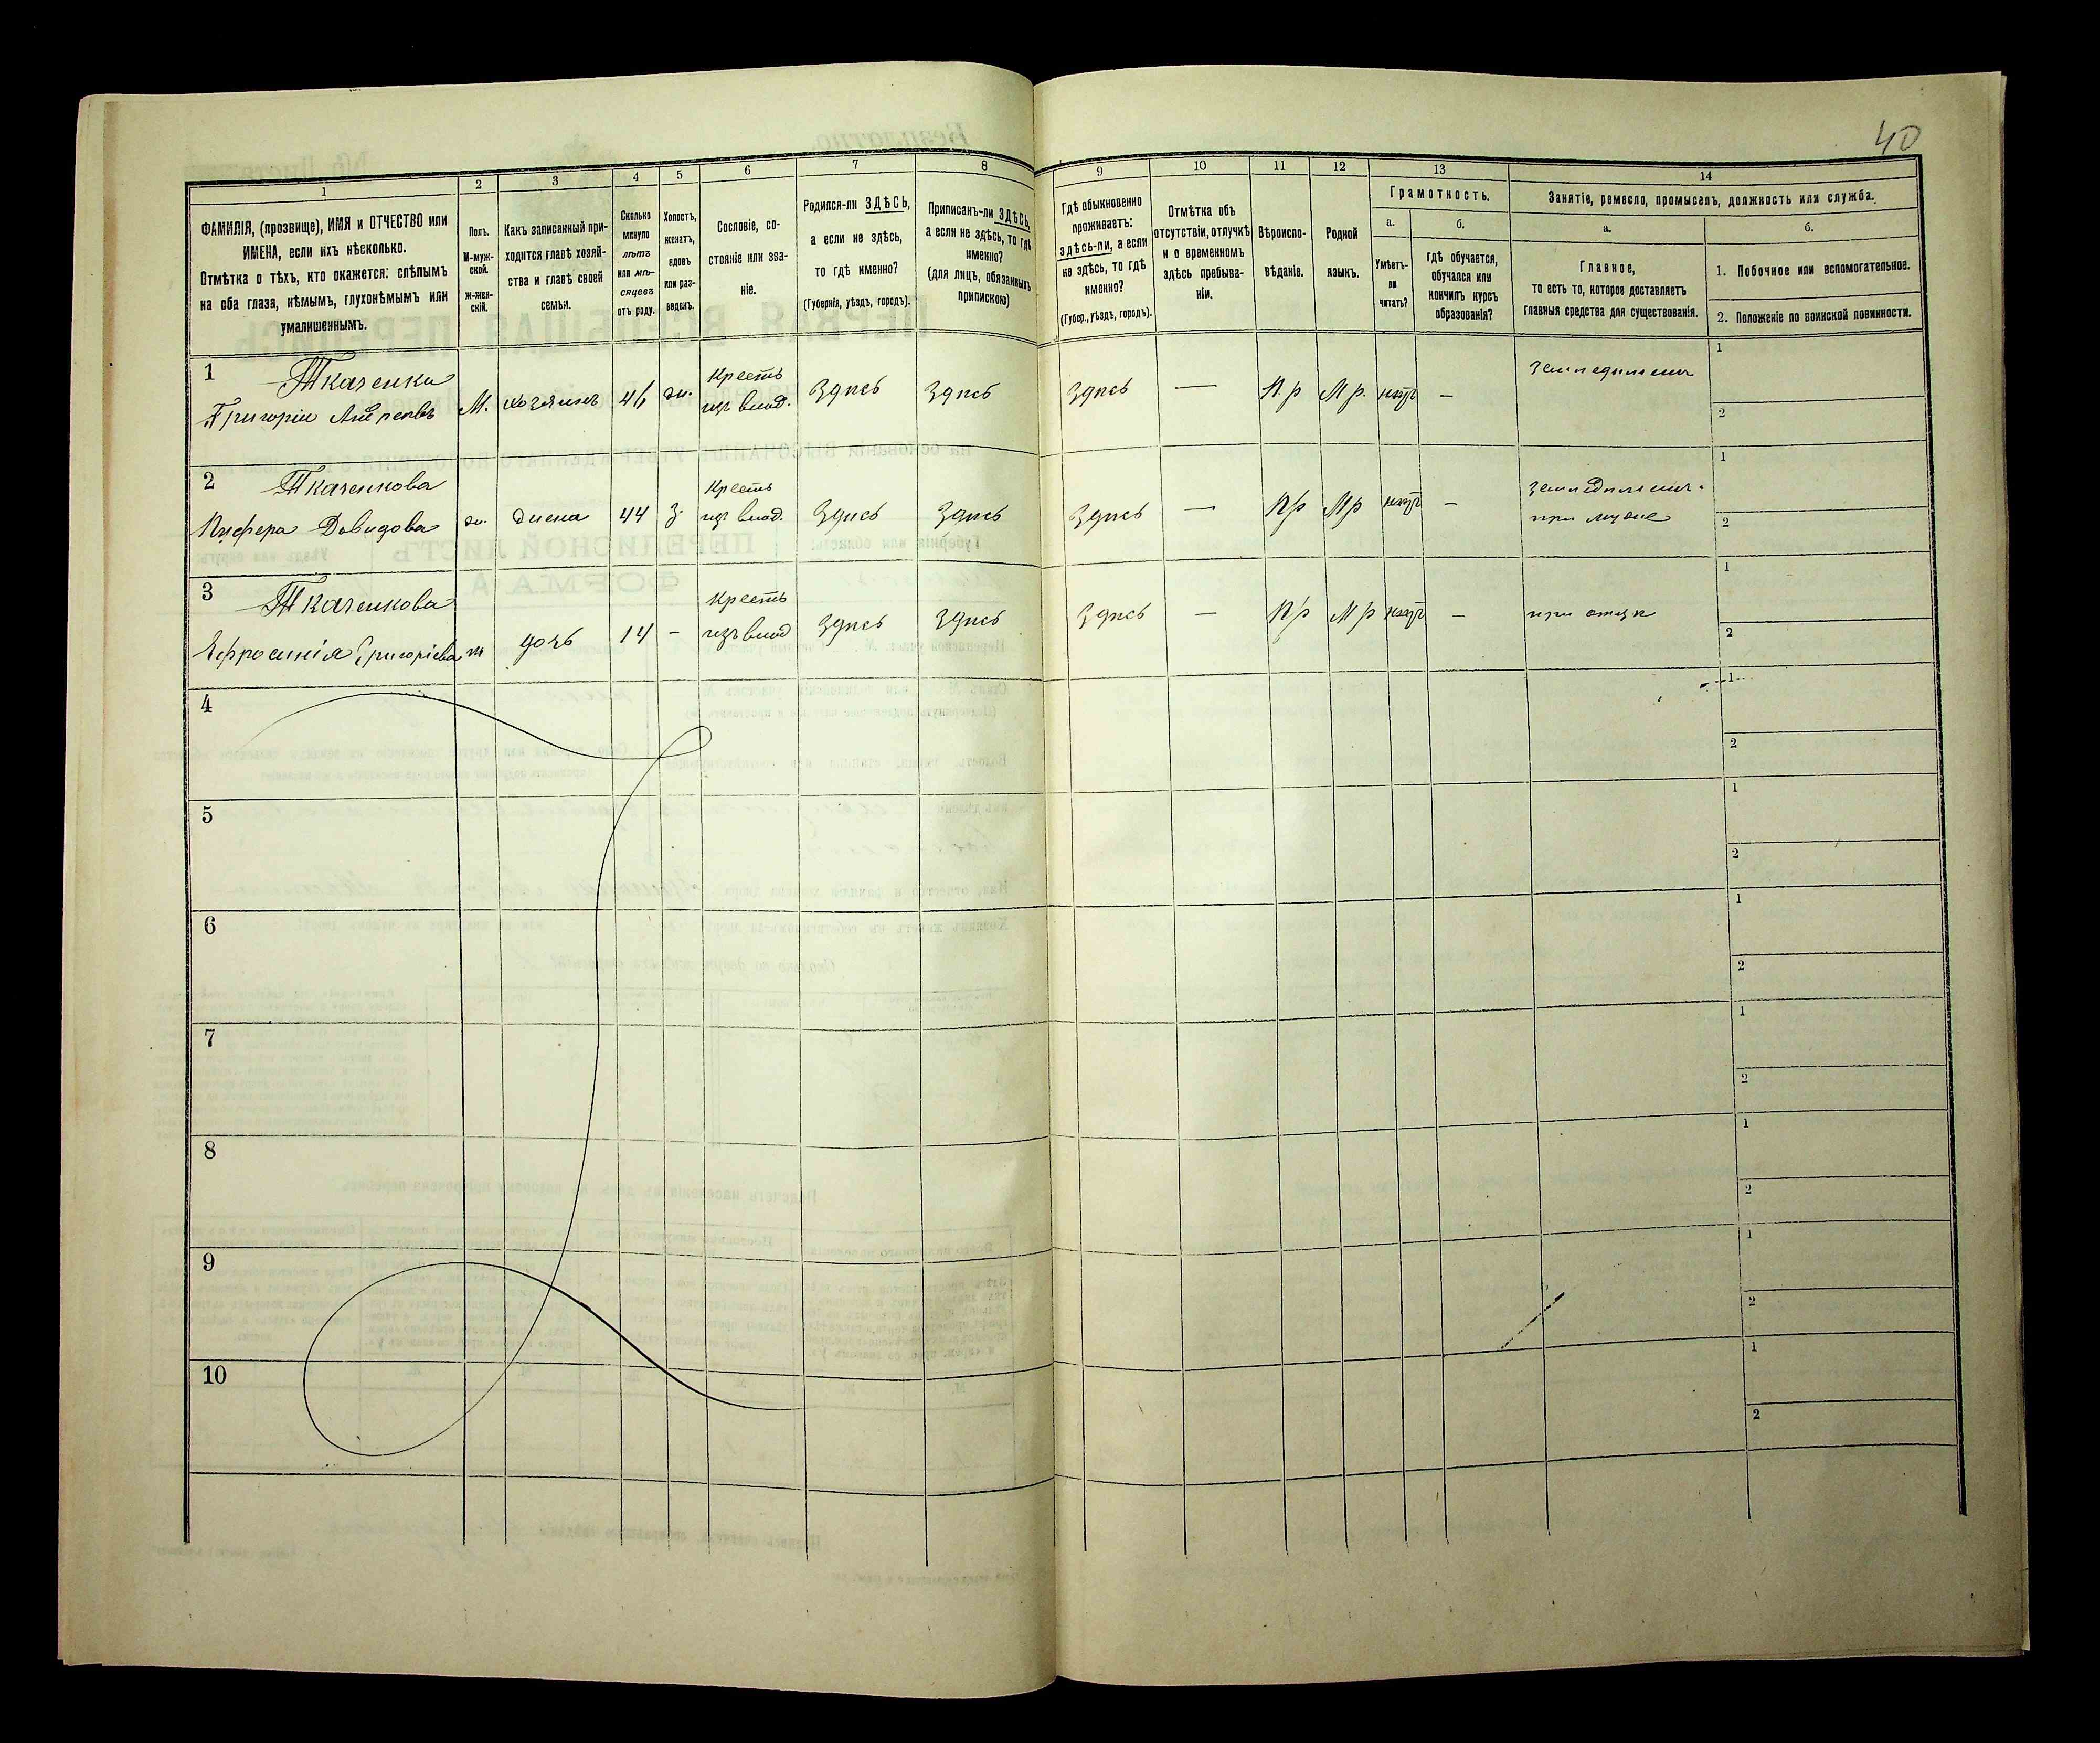 40
1
2
3
4
5
6
7
8
9
10
11
12
13
14
ФАМИЛІЯ, (прозвище), ИМЯ и ОТЧЕСТВО или
ИМЕНА, если ихъ нѣсколько.
Отмѣтка о тѣхъ, кто окажется: слѣпымъ
на оба глаза, нѣмымъ, глухонѣмымъ или
умалишеннымъ.
Полъ.
М-муж-
ской.
ж-жен-
скій.
Какъ записанный при-
ходится главѣ хозяй-
ства и главѣ своей
семьи.
Сколько
минуло
лѣтъ
или мѣ-
сяцевъ
отъ роду.
Холостъ,
женатъ,
вдовъ
или раз-
веденъ.
Сословіе, со-
стояніе или зва-
ніе.
Родился-ли ЗДѢСЬ,
а если не здѣсь,
то гдѣ именно?
(Губернія, уѣздъ, городъ).
Приписанъ-ли ЗДѢСЬ,
а если не здѣсь, то гдѣ
именно?
(для лицъ, обязанныхъ
припискою)
Гдѣ обыкновенно
проживаетъ:
здѣсь-ли, а если
не здѣсь, то гдѣ
именно?
(Губер., уѣздъ, городъ).
Отмѣтка объ
отсутствіи, отлучкѣ
и о временномъ
здѣсь пребыва-
ніи.
Вѣроиспо-
вѣданіе.
Родной
языкъ.
Грамотность.
а.
Умѣетъ-
ли
читать?
б.
гдѣ обучается,
обучался или
кончилъ курсъ
образованія?
Занятіе, ремесло, промыселъ, должность или служба.
а.
Главное,
то есть то, которое доставляетъ
главныя средства для существованія.
б.
1. Побочное или вспомогательное.
2. Положеніе по воинской повинности.
1 Ткаченко
Григорій Андреевъ М. хозяинъ 46 ж. Крестъ изъ влад. Здѣсь Здѣсь Здѣсь — Пр Мр. нѣтъ — Земледѣлецъ
1
2
2 Ткаченкова
Давидова ж. жена 44 з. Крестъ изъ влад. Здѣсь Здѣсь Здѣсь — Пр Мр нѣтъ —
при мужѣ
1
2
3 Ткаченкова
Ефросинія Григоріева ж дочь 14 – Крестъ изъ влад Здѣсь Здѣсь Здѣсь — Пр Мр нѣтъ — при отцѣ
1
2
4
1
2
5
1
2
6
1
2
7
1
2
8
1
2
9
1
2
10
1
2